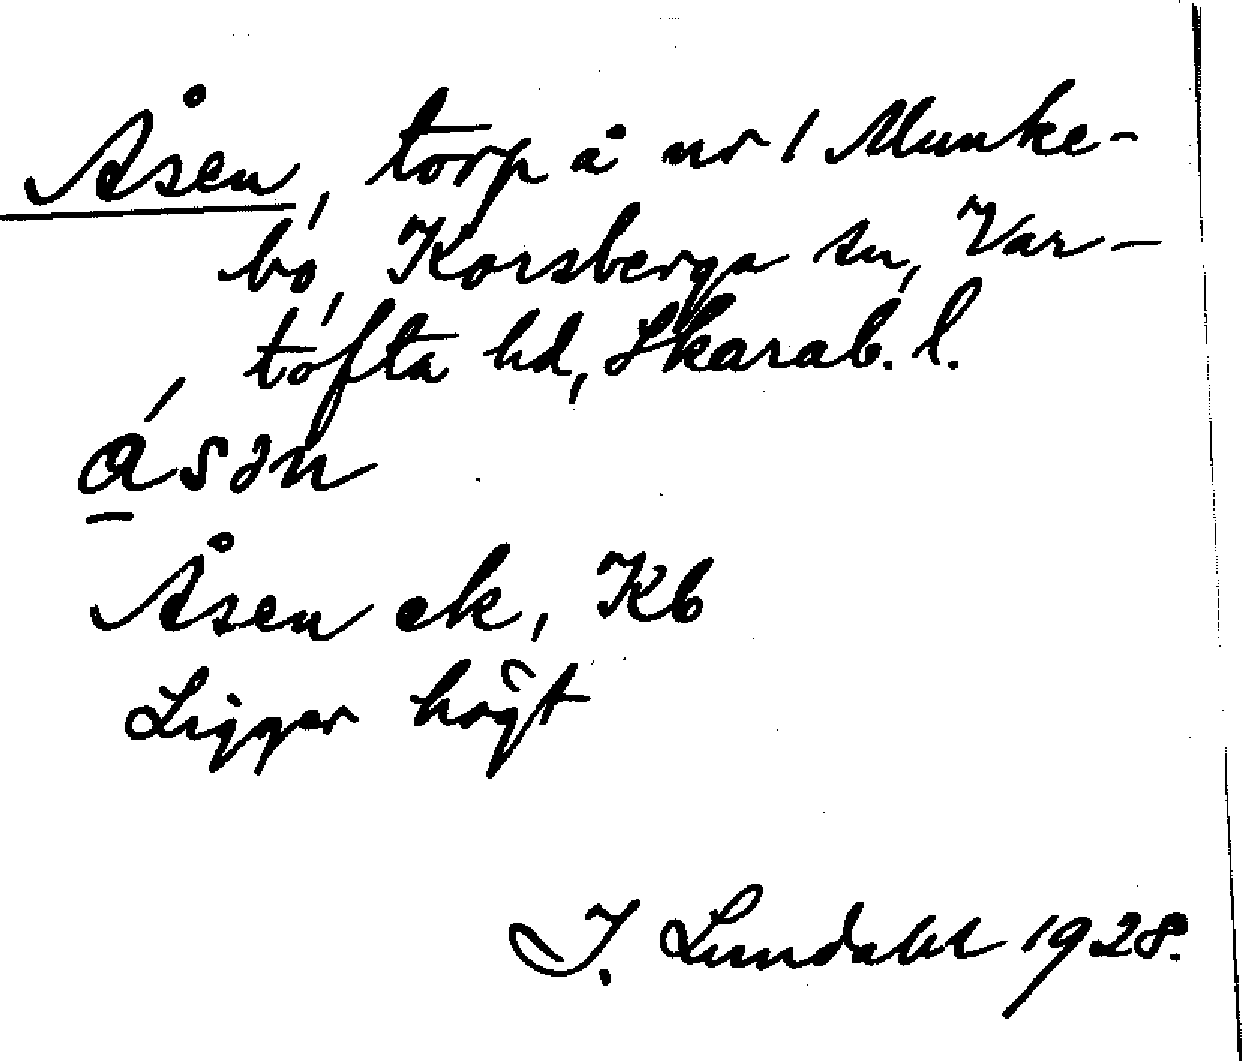 Åsen, torp å nr 1 Munke-
bo, Korsberga sn, Var-
tofta hd, Skarab. l.
ǻsən
Åsen ek, Kb
Ligger högt
I. Lundahl 1928.